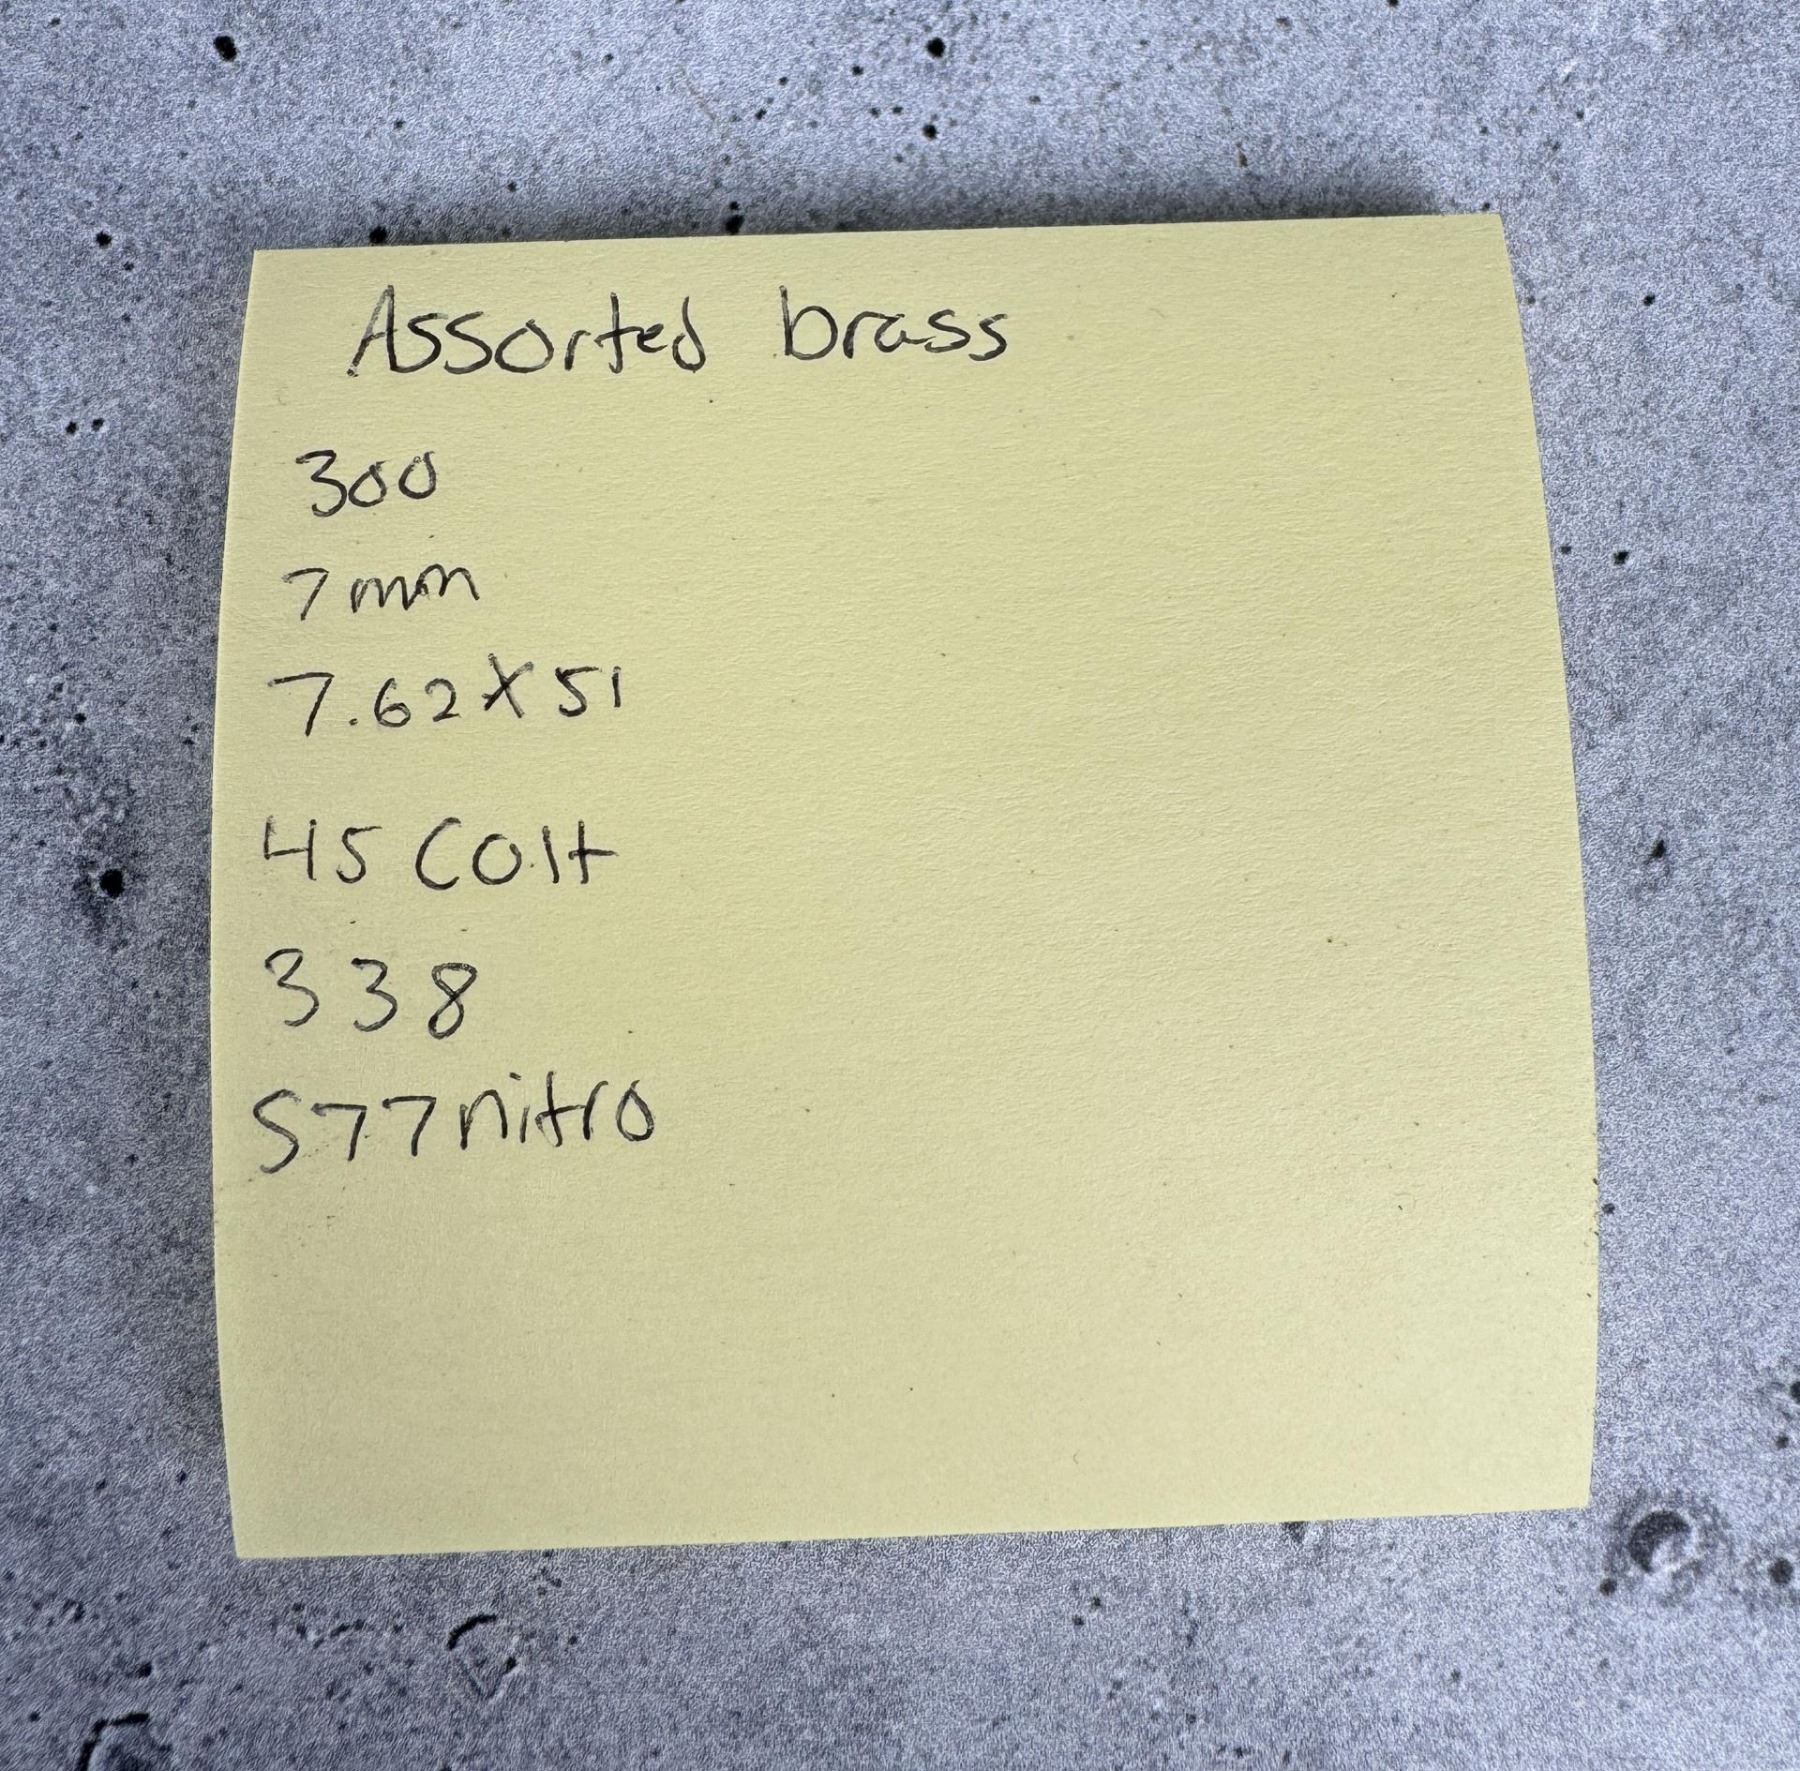 Assorted brass
300
7mm
7.62x51
45 Colt
338
577nitro